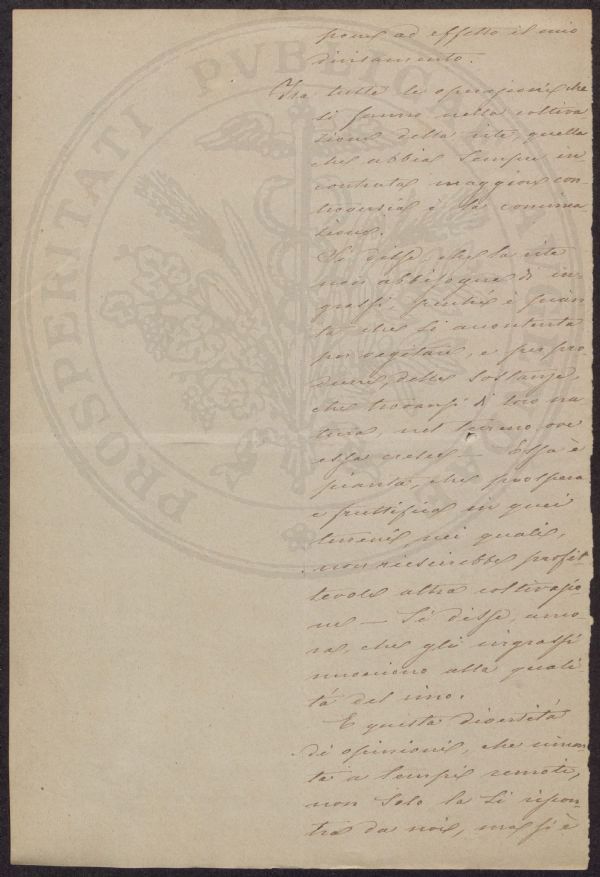 PROSPERITATI PVBLICA
porre ad effetto il mio
divisamento.
Fra tutte le operazioni che
si fanno nella coltiva
zione della vite, quella
che abbia sempre in
contrata maggior con-
troversia è la concima-
zione.
Si disse, che la vite
non abbisogna di in-
grassi perché è pian
ta che si accontenta
per vegetare, e per pro-
durre, delle sostanze,
che trovansi di loro na
tura nel terreno ove
essa cresce. — Essa è
pianta, che prospera
e fruttifica in quei
terreni, nei quali,
non riescirebbe profit
tevole altra coltivazio
ne — Si disse, anco-
ra, che gli ingrassi
nuociono alla quali-
tà del vino.
E questa diversità
di opinioni, che rimon
ta a tempi remoti,
non solo la si riscon-
tra da noi, ma si è